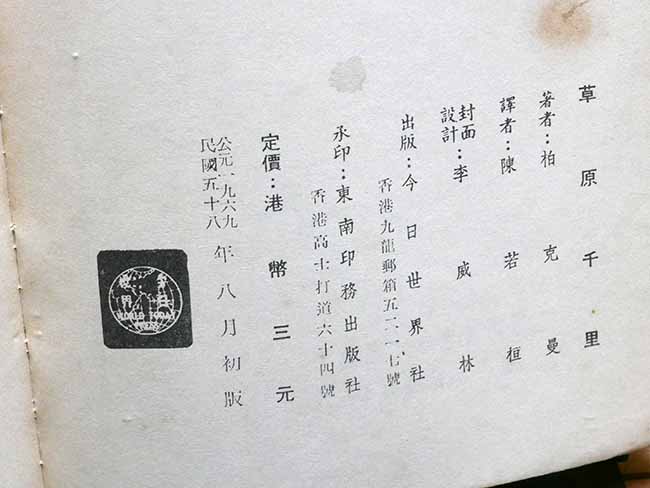 草原千里
著者：柏克曼
譯者：陳若桓
封面設計：李威林
出版：今日世界社
香港九龍郵箱五二一七號
承印：東南印務出版社
香港高士打道六十四號
定價：港幣三元
公元一九六九
民國五十八
年八月初版
今日世界
WORLD TODAY
PRESS